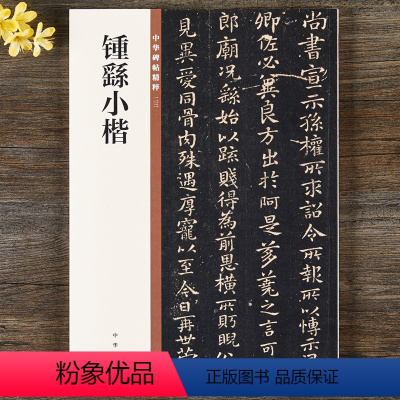 中华碑帖精粹
锺繇小楷
中华
尚书宣示孙权所求诏令所报所以博示
卿佐必冀良方出於阿是芻蕘之言可
郎廟况繇始以疏賤得為前恩横所盼睨公
見異愛同骨肉殊遇厚寵以至今日再世荣
粉象优品
官方正版